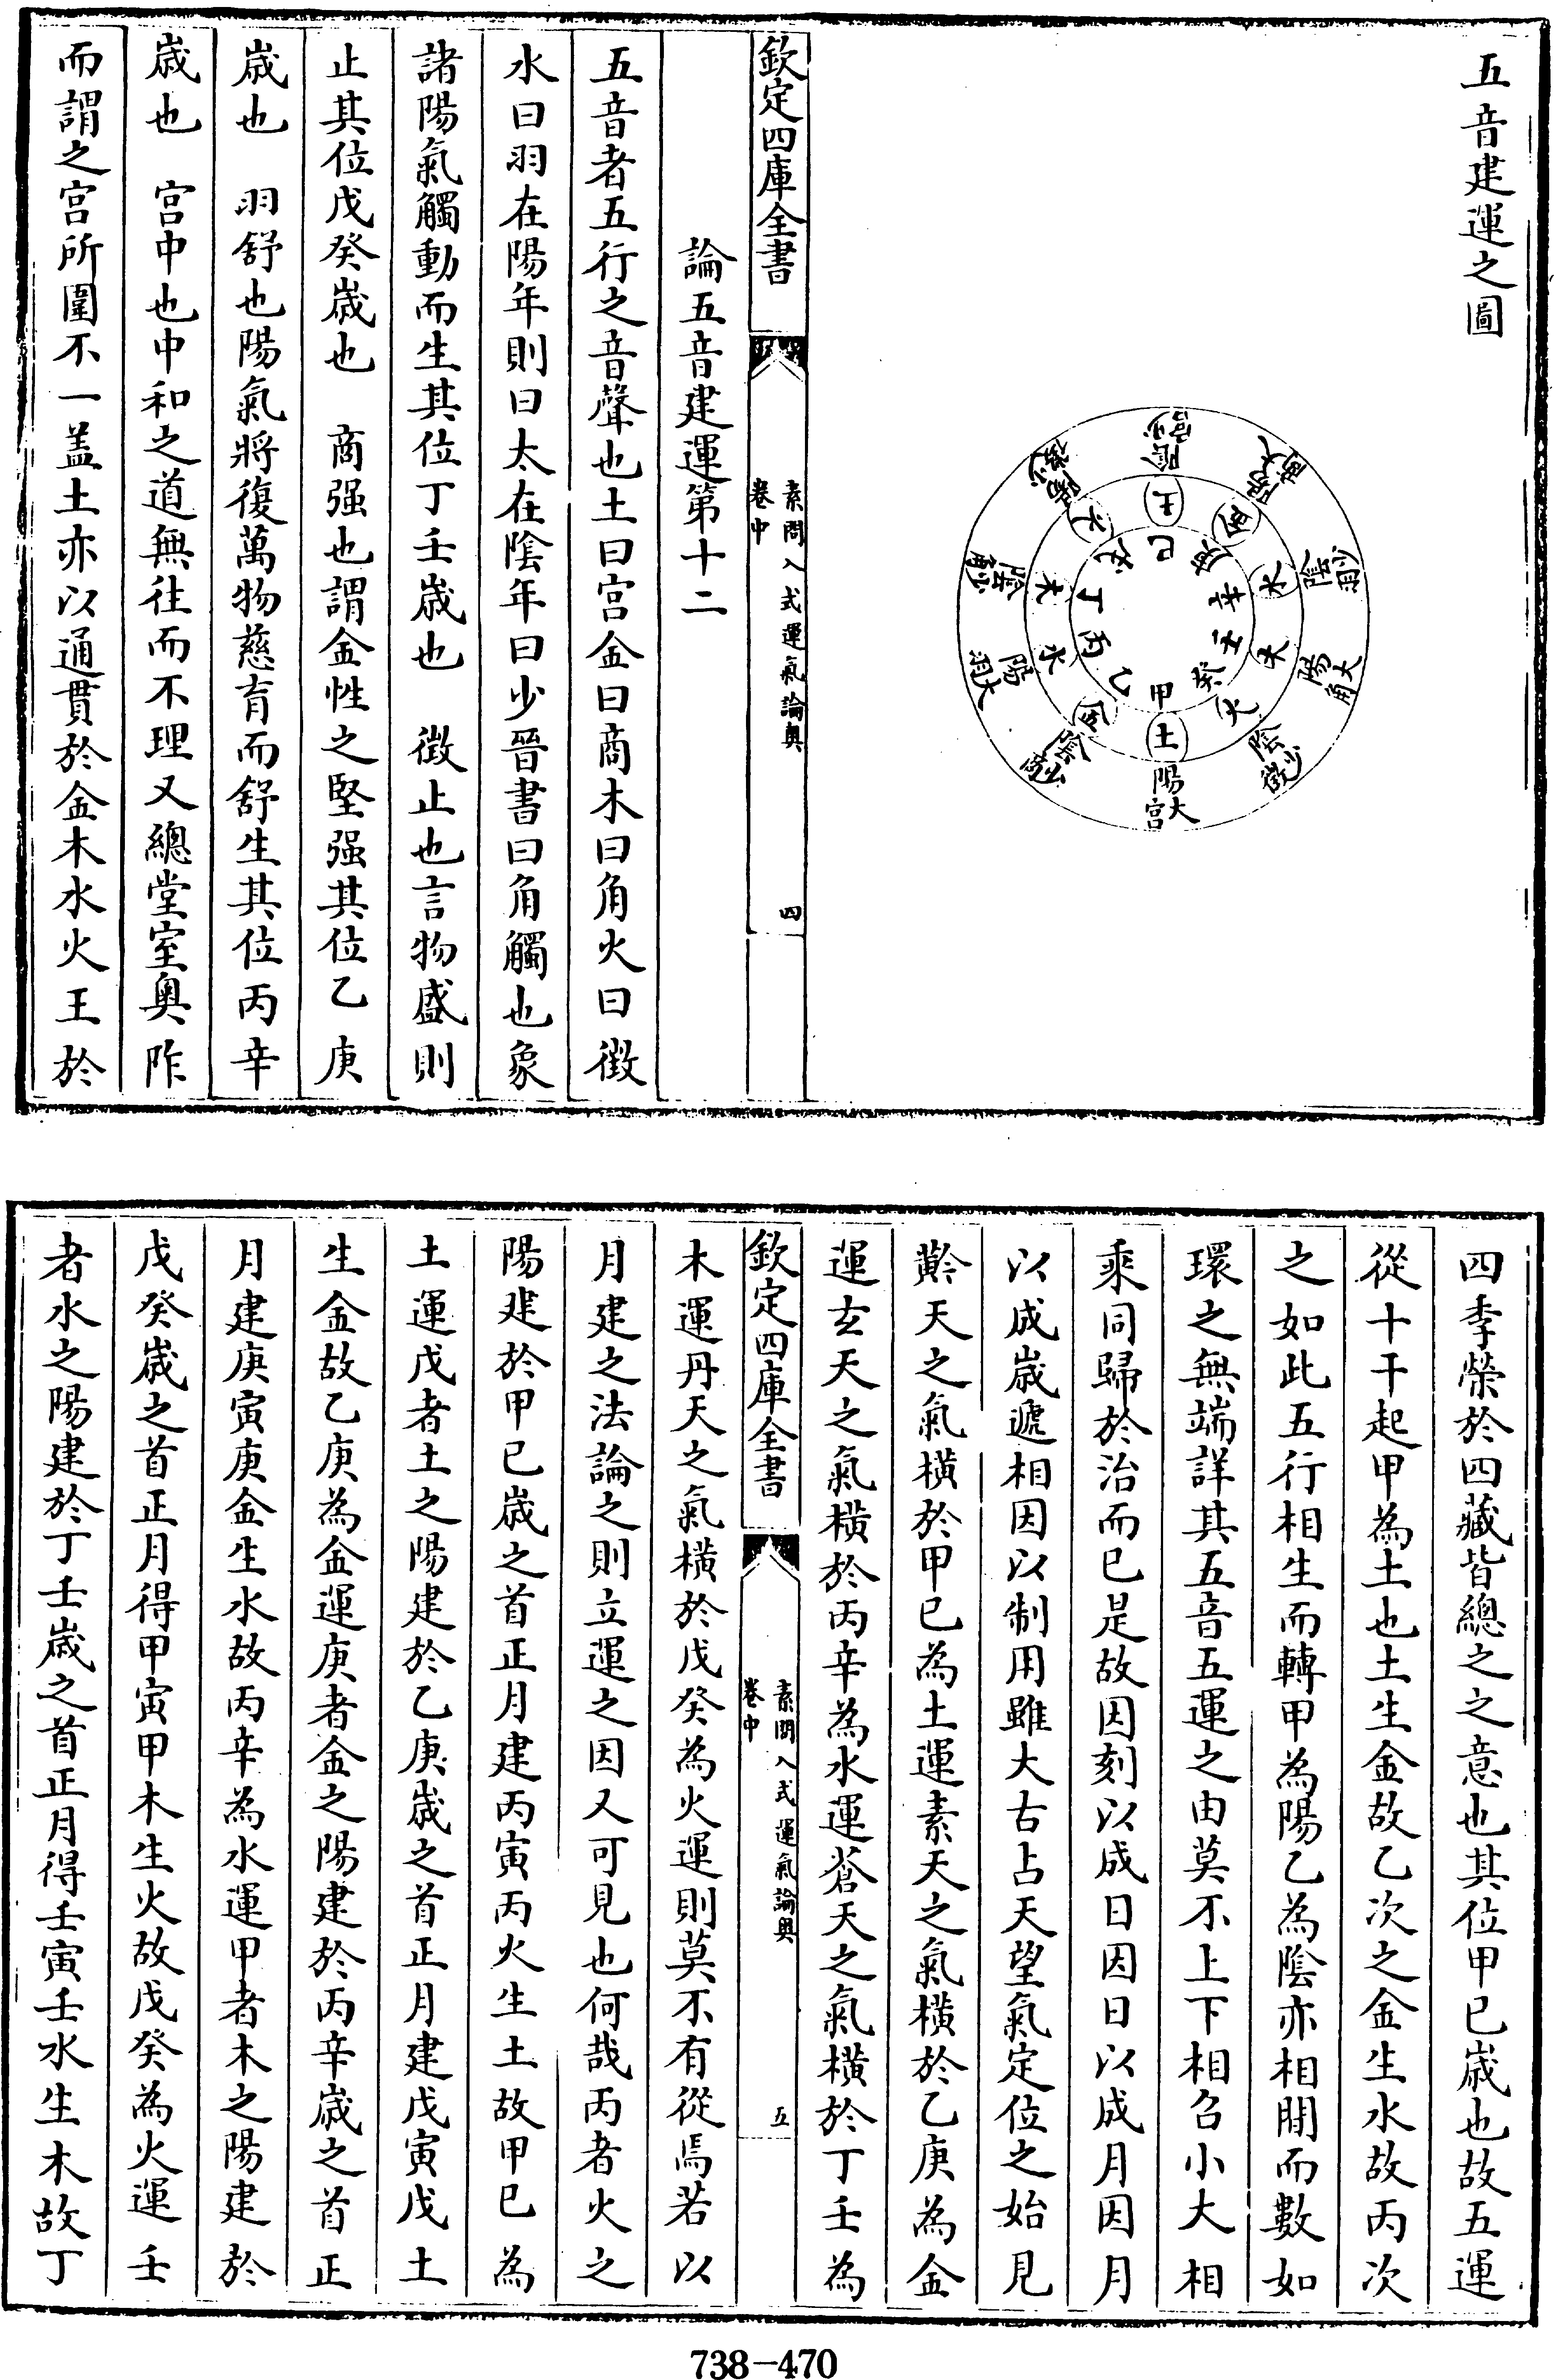 五音建運之圖
甲
土
陽
大宫
乙
金
陰
少商
丙
水
陽
大羽
丁
木
陰
少角
戊
火
陽
少徵
己
土
陰
少宫
庚
金
陽
大商
辛
水
陰
少羽
壬
木
陽
大角
癸
火
陰
少徵
欽定四庫全書
素問入式運氣論奥
卷中
四
論五音建運第十二
五音者五行之音聲也土曰宫金曰商木曰角火曰徴
水曰羽在陽年則曰太在陰年曰少晉書曰角觸也象
諸陽氣觸動而生其位丁壬歳也 徴止也言物盛則
止其位戊癸歳也 商强也謂金性之堅强其位乙庚
歳也 羽舒也陽氣將復萬物慈育而舒生其位丙辛
歳也 宫中也中和之道無往而不理又總堂室奥阼
而謂之宫所圍不一盖土亦以通貫於金木水火王於
四季榮於四藏皆總之之意也其位甲已歳也故五運
從十干起甲為土也土生金故乙次之金生水故丙次
之如此五行相生而轉甲為陽乙為陰亦相間而數如
環之無端詳其五音五運之由莫不上下相召小大相
乘同歸於治而已是故因刻以成日因日以成月因月
以成歳遞相因以制用雖大古占天望氣定位之始見
黅天之氣横於甲已為土運素天之氣横於乙庚為金
運玄天之氣横於丙辛為水運蒼天之氣横於丁壬為
欽定四庫全書
素問入式運氣論奥
卷中
五
木運丹天之氣横於戊癸為火運則莫不有從焉若以
月建之法論之則立運之因又可見也何哉丙者火之
陽建於甲已歳之首正月建丙寅丙火生土故甲已為
土運戊者土之陽建於乙庚歳之首正月建戊寅戊土
生金故乙庚為金運庚者金之陽建於丙辛歳之首正
月建庚寅庚金生水故丙辛為水運甲者木之陽建於
戊癸歳之首正月得甲寅甲木生火故戊癸為火運壬
者水之陽建於丁壬歳之首正月得壬寅壬水生木故丁
738-470